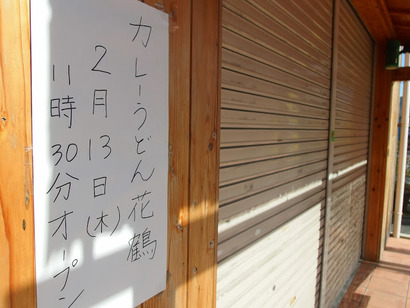 カレーうどん花鶴
2月13日(木)
11時30分オープン